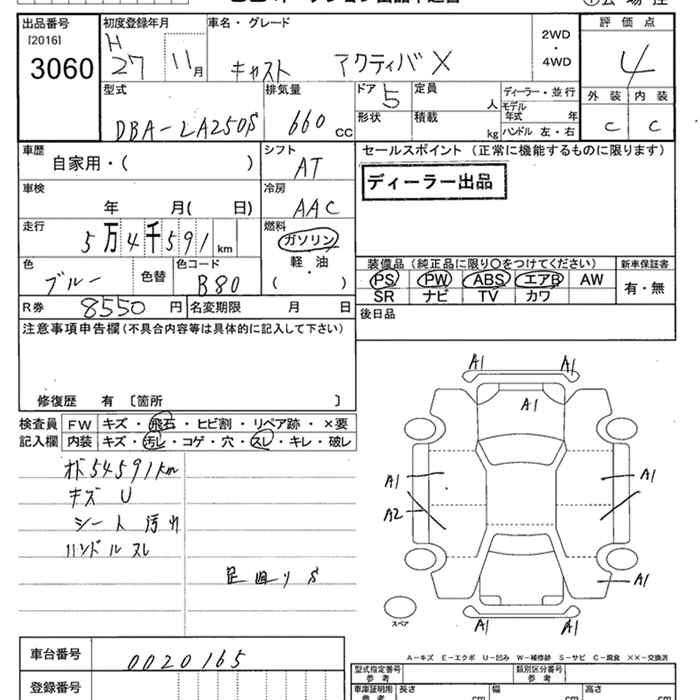 出品番号 初度登録年月 車名・グレード 2WD・4WD 評価点
[2016] 3060 H27 11月 キャスト アクティバX 4
型式 排気量 ドア 定員 ディーラー・並行 外装 内装
DBA-LA250S 660cc 5 人 モデル年式 年 C C
形状 積載 kg ハンドル 左・右
車歴 シフト セールスポイント (正常に機能するものに限ります)
自家用・( ) AT
ディーラー出品
車検 冷房
年 月( 日) AAC
走行 燃料
5万4千591km ガソリン
軽・油
( )
色 色替 色コード
ブルー B80
装備品 (純正品に限り〇をつけてください) 新車保証書
PS PW ABS エアB AW 有・無
SR ナビ TV カワ
R券 8550円 名変期限 月 日
後日品
注意事項申告欄 (不具合内容等は具体的に記入して下さい)
修復歴 有 〔箇所 〕
検査員記入欄
FW キズ・飛石・ヒビ割・リペア跡・×要
内装 キズ・汚レ・コゲ・穴・スレ・キレ・破レ
オド54591km
キズ U
シート汚れ
ハンドルスレ
足回りS
A1 A1
A1
A1 A1
A2
A1
A1 A1
スペア
A-キズ E-エクボ U-凹み W-補修跡 S-サビ C-腐食 ××-交換済
車台番号 0020165
型式指定番号 参考 類別区分番号 参考
登録番号
車庫証明用 参考 長さ cm 幅 cm 高さ cm